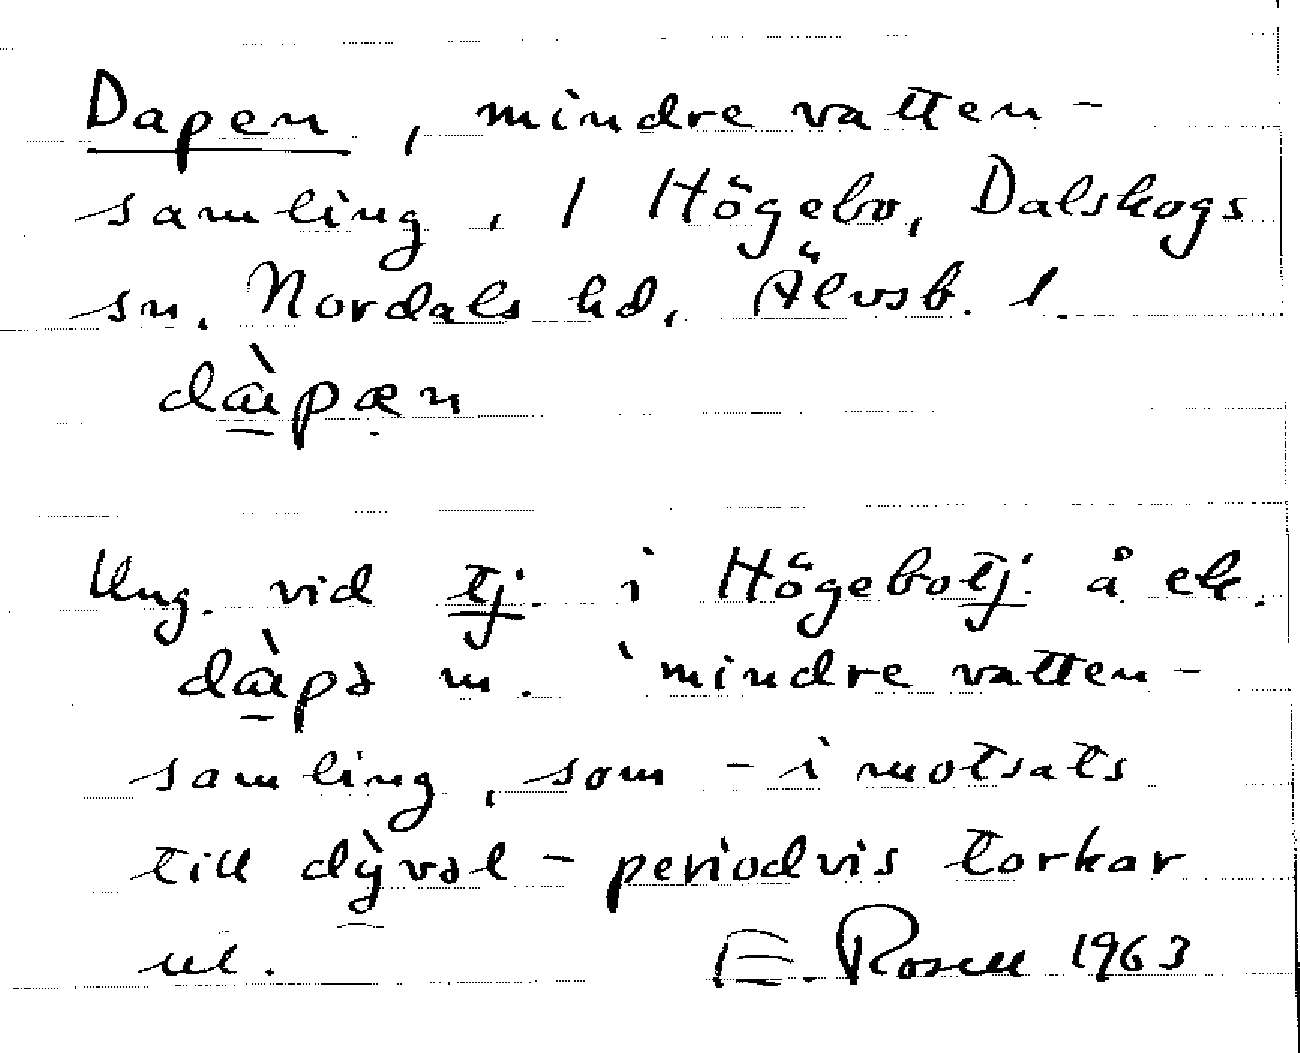 Dapen, mindre vatten-
samling, / Högebo, Dalskogs
sn. Nordals hd, Älvsb. l.
dàpæn
Ung. vid tj. i Högebotj. å ek.
dàpə m. `mindre vatten-
samling, som - i motsats
till dỳvəl - periodvis torkar
ut.
E. Rosell 1963